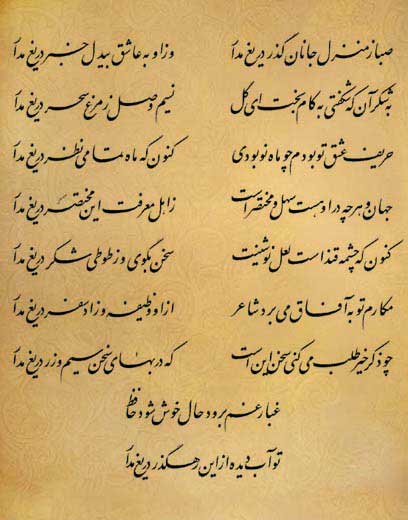 صبا ز منزل جانان گذر دریغ مدار وز او به عاشق بیدل خبر دریغ مدار
به شکر آن که شکفتی به کام بخت ای گل نسیم وصل ز مرغ سحر دریغ مدار
حریف عشق تو بودم چو ماه نو بودی کنون که ماه تمامی نظر دریغ مدار
جهان و هر چه در او هست سهل و مختصر است ز اهل معرفت این مختصر دریغ مدار
کنون که چشمه قند است لعل نوشینت سخن بگوی و ز طوطی شکر دریغ مدار
مکارم تو به آفاق می برد شاعر از او وظیفه و زاد سفر دریغ مدار
چو ذکر خیر طلب می کنی سخن این است که در بهای سخن سیم و زر دریغ مدار
غبار غم برود حال خوش شود حافظ
تو آب دیده از این رهگذر دریغ مدار